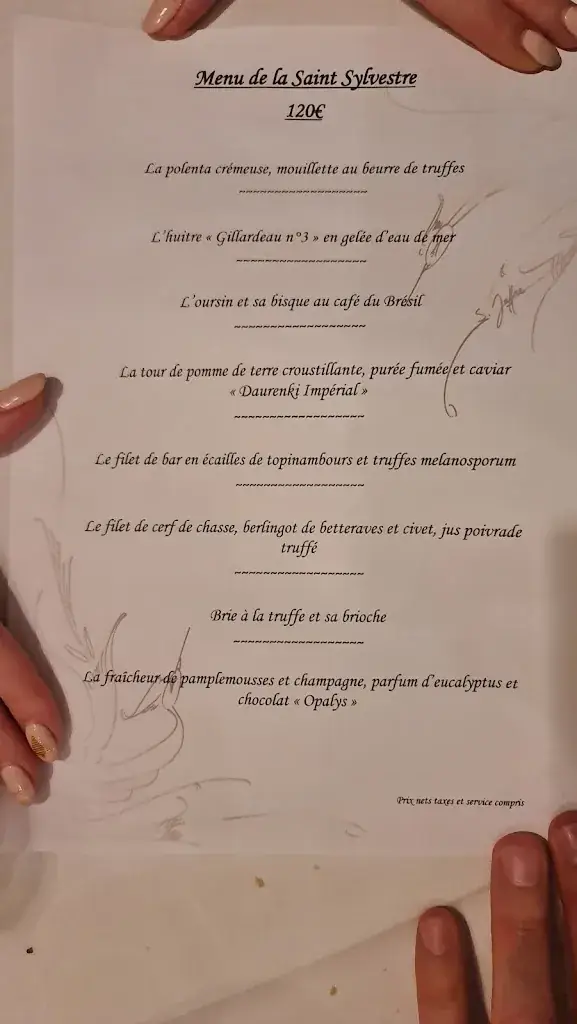 Menu de la Saint Sylvestre
120€
La polenta crémeuse, mouillette au beurre de truffes
~~~~~~~~~~~~~~~~~~
L'huitre « Gillardeau n°3 » en gelée d'eau de mer
~~~~~~~~~~~~~~~~~~
L'oursin et sa bisque au café du Brésil
~~~~~~~~~~~~~~~~~~
La tour de pomme de terre croustillante, purée fumée et caviar
« Daurenki Impérial »
~~~~~~~~~~~~~~~~~~
Le filet de bar en écailles de topinambours et truffes melanosporum
~~~~~~~~~~~~~~~~~~
Le filet de cerf de chasse, berlingot de betteraves et civet, jus poivrade
truffé
~~~~~~~~~~~~~~~~~~
Brie à la truffe et sa brioche
~~~~~~~~~~~~~~~~~~
La fraîcheur de pamplemousses et champagne, parfum d'eucalyptus et
chocolat « Opalys »
Prix nets taxes et service compris